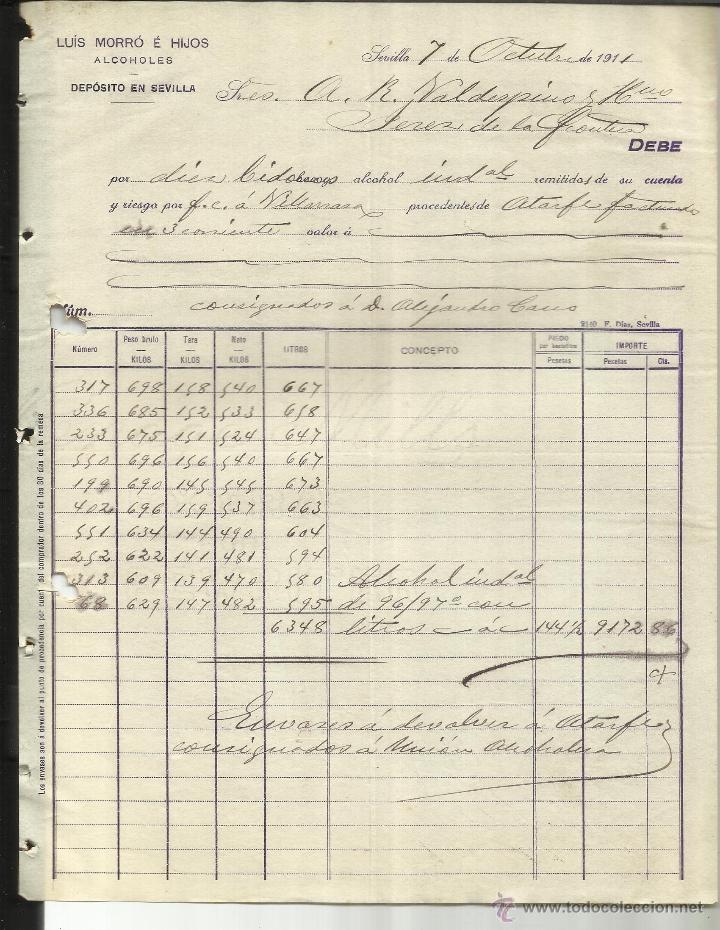 LUÍS MORRÓ É HIJOS
ALCOHOLES
DEPÓSITO EN SEVILLA
Sevilla 7 de Octubre de 1911
Sres. A. R. Valdespino y Hno
Jerez de la Frontera
DEBE
por diez bidones alcohol indal remitidos de su cuenta
y riesgo por f.c. á Villarrasa procedentes de Atarfe facturados
en 3 corriente valor á
Núm.
consignados á D. Alejandro Cano
2140 F. Díaz, Sevilla
Número Peso bruto KILOS Tara KILOS Neto KILOS LITROS CONCEPTO PRECIO por hectolitro Pesetas IMPORTE Pesetas Cts.
317 698 158 540 667
336 685 152 533 658
233 675 151 524 647
550 696 156 540 667
199 690 145 545 673
402 696 159 537 663
551 634 144 490 604
252 622 141 481 594
313 609 139 470 580 Alcohol indal
68 629 147 482 595 de 96/97º con
6348 litros a 144 1/2 9172 86
Envases á devolver á Atarfe
consignados á Unión Alcoholera
Los envases son á devolver al punto de procedencia por cuenta del comprador dentro de los 30 días de la remesa
todocoleccion.net